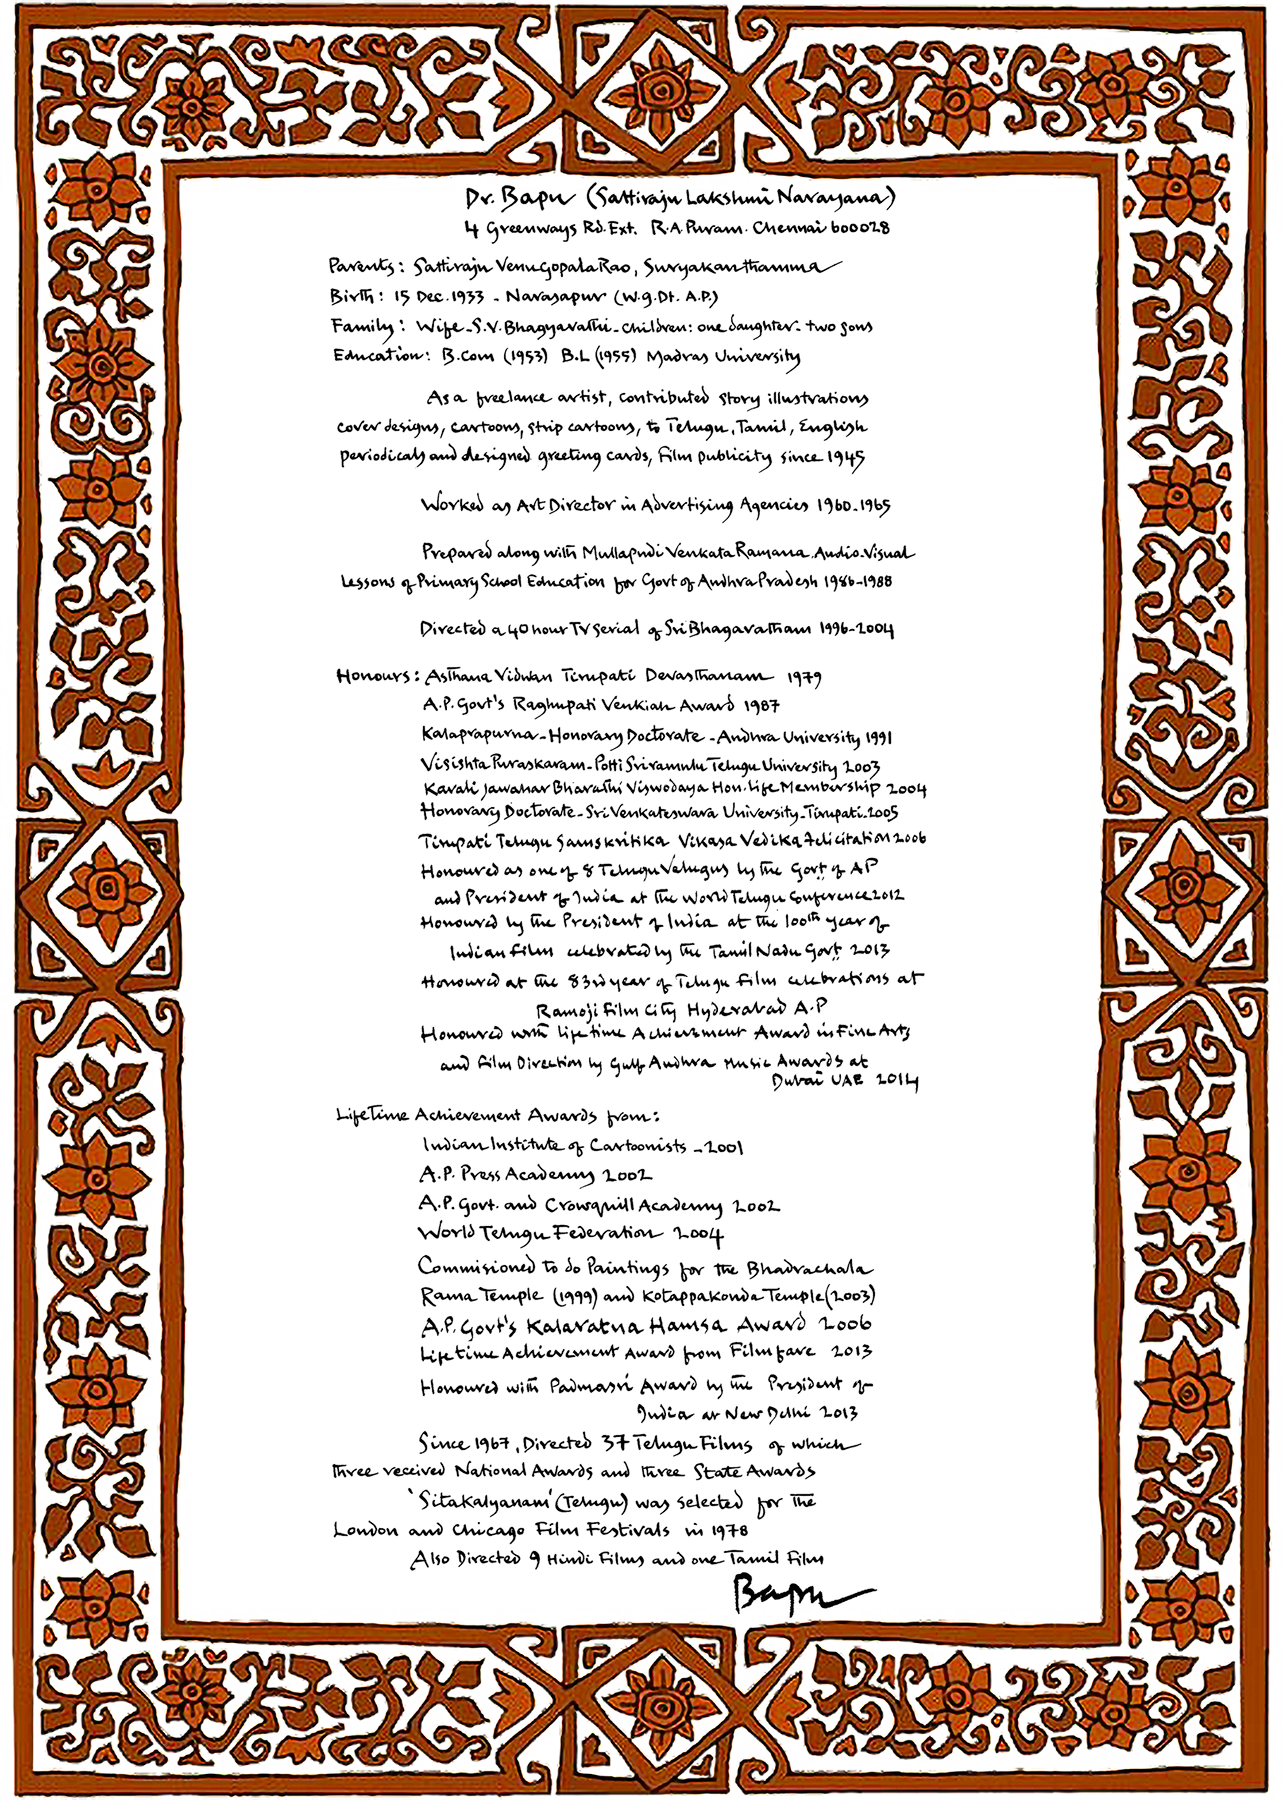 Dr. Bapu (Sattiraju Lakshmi Narayana)
4 Greenways Rd. Ext. R.A. Puram. Chennai 600028
Parents: Sattiraju VenuGopala Rao, Suryakanthamma
Birth: 15 Dec. 1933 - Narasapur (W.g.Dt. A.P.)
Family: Wife - S.V. Bhagyavathi - children: one daughter - two sons
Education: B.Com (1953) B.L (1955) Madras University
As a freelance artist, contributed story illustrations
cover designs, cartoons, strip cartoons, to Telugu, Tamil, English
periodicals and designed greeting cards, film publicity since 1945
Worked as Art Director in Advertising Agencies 1960-1965
Prepared along with Mullapudi Venkata Ramana Audio-Visual
Lessons of Primary School Education for Govt of Andhra Pradesh 1986-1988
Directed a 40 hour TV serial of Sri Bhagavatham 1996-2004
Honours: Asthana Vidwan Tirupati Devasthanam 1979
A.P. Govt's Raghupati Venkiah Award 1987
Kalaprapurna - Honorary Doctorate - Andhra University 1991
Visishta Puraskaram - Potti Sriramulu Telugu University 2003
Kavali Jawahar Bharathi Viswodaya Hon. Life Membership 2004
Honorary Doctorate - Sri Venkateswara University - Tirupati - 2005
Tirupati Telugu Samskritika Vikasa Vedika Felicitation 2006
Honoured as one of 8 Telugu Velugus by the Govt of AP
and President of India at the World Telugu Conference 2012
Honoured by the President of India at the 100th year of
Indian film celebrated by the Tamil Nadu Govt 2013
Honoured at the 83rd year of Telugu film celebrations at
Ramoji Film City Hyderabad A.P
Honoured with life time Achievement Award in Fine Arts
and Film Direction by Gulf Andhra Music Awards at
Dubai UAE 2014
LifeTime Achievement Awards from:
Indian Institute of Cartoonists - 2001
A.P. Press Academy 2002
A.P. Govt. and Crowquill Academy 2002
World Telugu Federation 2004
Commisioned to do Paintings for the Bhadrachala
Rama Temple (1999) and Kotappakonda Temple (2003)
A.P. Govt's Kalaratna Hamsa Award 2006
Life time Achievement Award from Filmfare 2013
Honoured with Padmasri Award by the President of
India at New Delhi 2013
Since 1967, Directed 37 Telugu Films of which
three received National Awards and three State Awards
'Sitakalyanam' (Telugu) was selected for the
London and Chicago Film Festivals in 1978
Also Directed 9 Hindi Films and one Tamil Film
Bapu